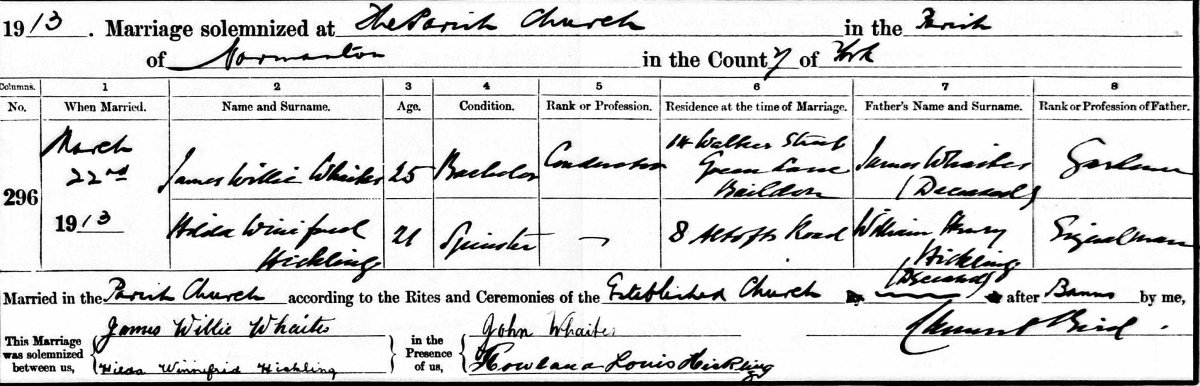 1913. Marriage solemnized at The Parish Church in the Parish
of Normanton in the County of York
Columns. 1 2 3 4 5 6 7 8
No. When Married. Name and Surname. Age. Condition. Rank or Profession. Residence at the time of Marriage. Father's Name and Surname. Rank or Profession of Father.
296 March 22nd 1913 James Willie Whaites 25 Bachelor Conductor 14 Walker Street Green Lane Baildon James Whaites (Deceased) Gardener
Hilda Winifred Hickling 21 Spinster — 8 Altofts Road William Henry Hickling (Deceased) Signalman
Married in the Parish Church according to the Rites and Ceremonies of the Established Church by after Banns by me,
This Marriage was solemnized between us, James Willie Whaites in the Presence of us, John Whaites Bird
Hilda Winnifrid Hickling Louis Hickling